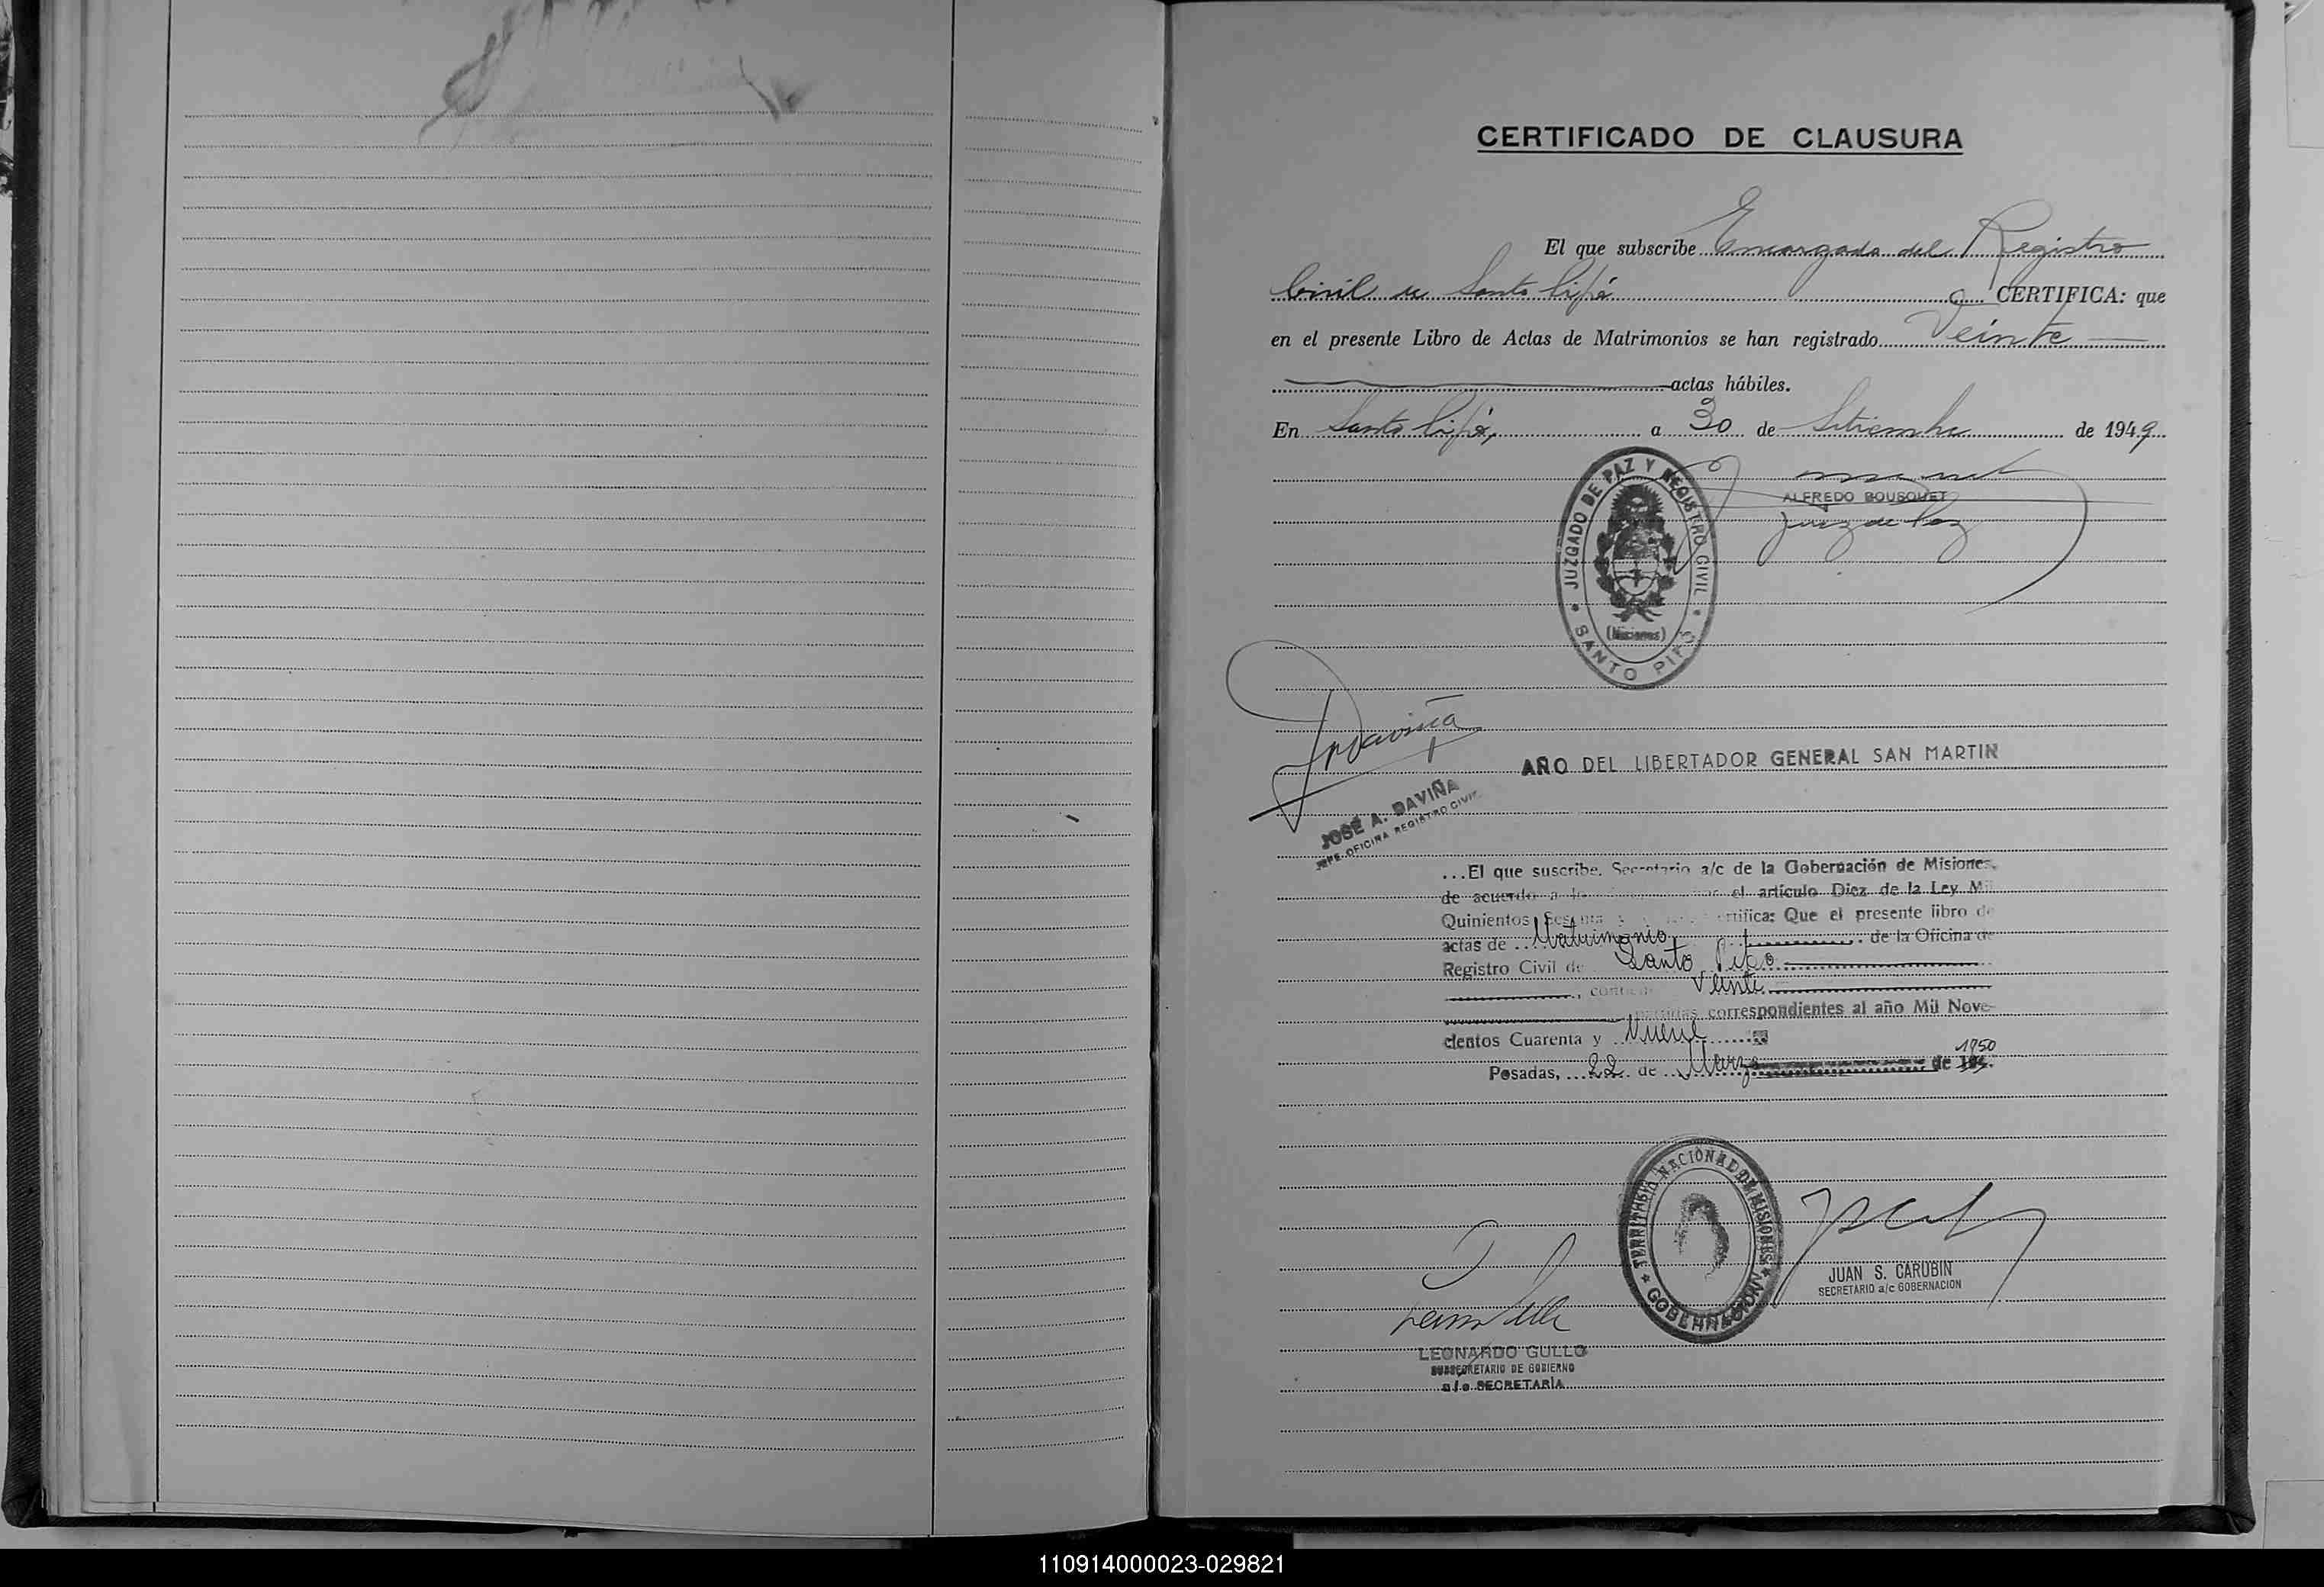 CERTIFICADO DE CLAUSURA
El que subscribe Encargado del Registro
Civil de Santo Pipó CERTIFICA: que
en el presente Libro de Actas de Matrimonios se han registrado Veinte
actas hábiles.
En Santo Pipó, a 30 de Setiembre de 1949
ALFREDO BOUSQUET
Juez de Paz
JUZGADO DE PAZ Y REGISTRO CIVIL
(Misiones)
SANTO PIPÓ
Daviña
AÑO DEL LIBERTADOR GENERAL SAN MARTIN
JOSÉ A. DAVIÑA
JEFE OFICINA REGISTRO CIVIL
...El que suscribe, Secretario a/c de la Gobernación de Misiones,
de acuerdo a lo el artículo Diez de la Ley Mil
Quinientos Sesenta y certifica: Que el presente libro de
actas de Matrimonio de la Oficina de
Registro Civil de Santo Pipo
contiene Veinte
partidas correspondientes al año Mil Nove-
cientos Cuarenta y Nueve
Posadas, 22 de Marzo de 194 1950
TERRITORIO NACIONAL DE MISIONES
GOBERNACION
JUAN S. CARUBIN
SECRETARIO a/c GOBERNACION
LEONARDO GULLO
SUBSECRETARIO DE GOBIERNO
a/c SECRETARÍA
110914000023-029821